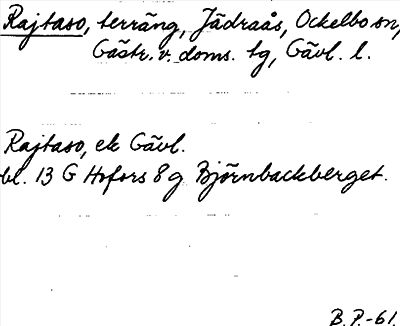 Rajtaso, terräng, Jädraås, Ockelbo sn,
Gästr. v. doms. tg, Gävl. l.
Rajtaso, ek Gävl.
bl. 13 G Hofors 8 g Björnbackberget.
B.P.-61.